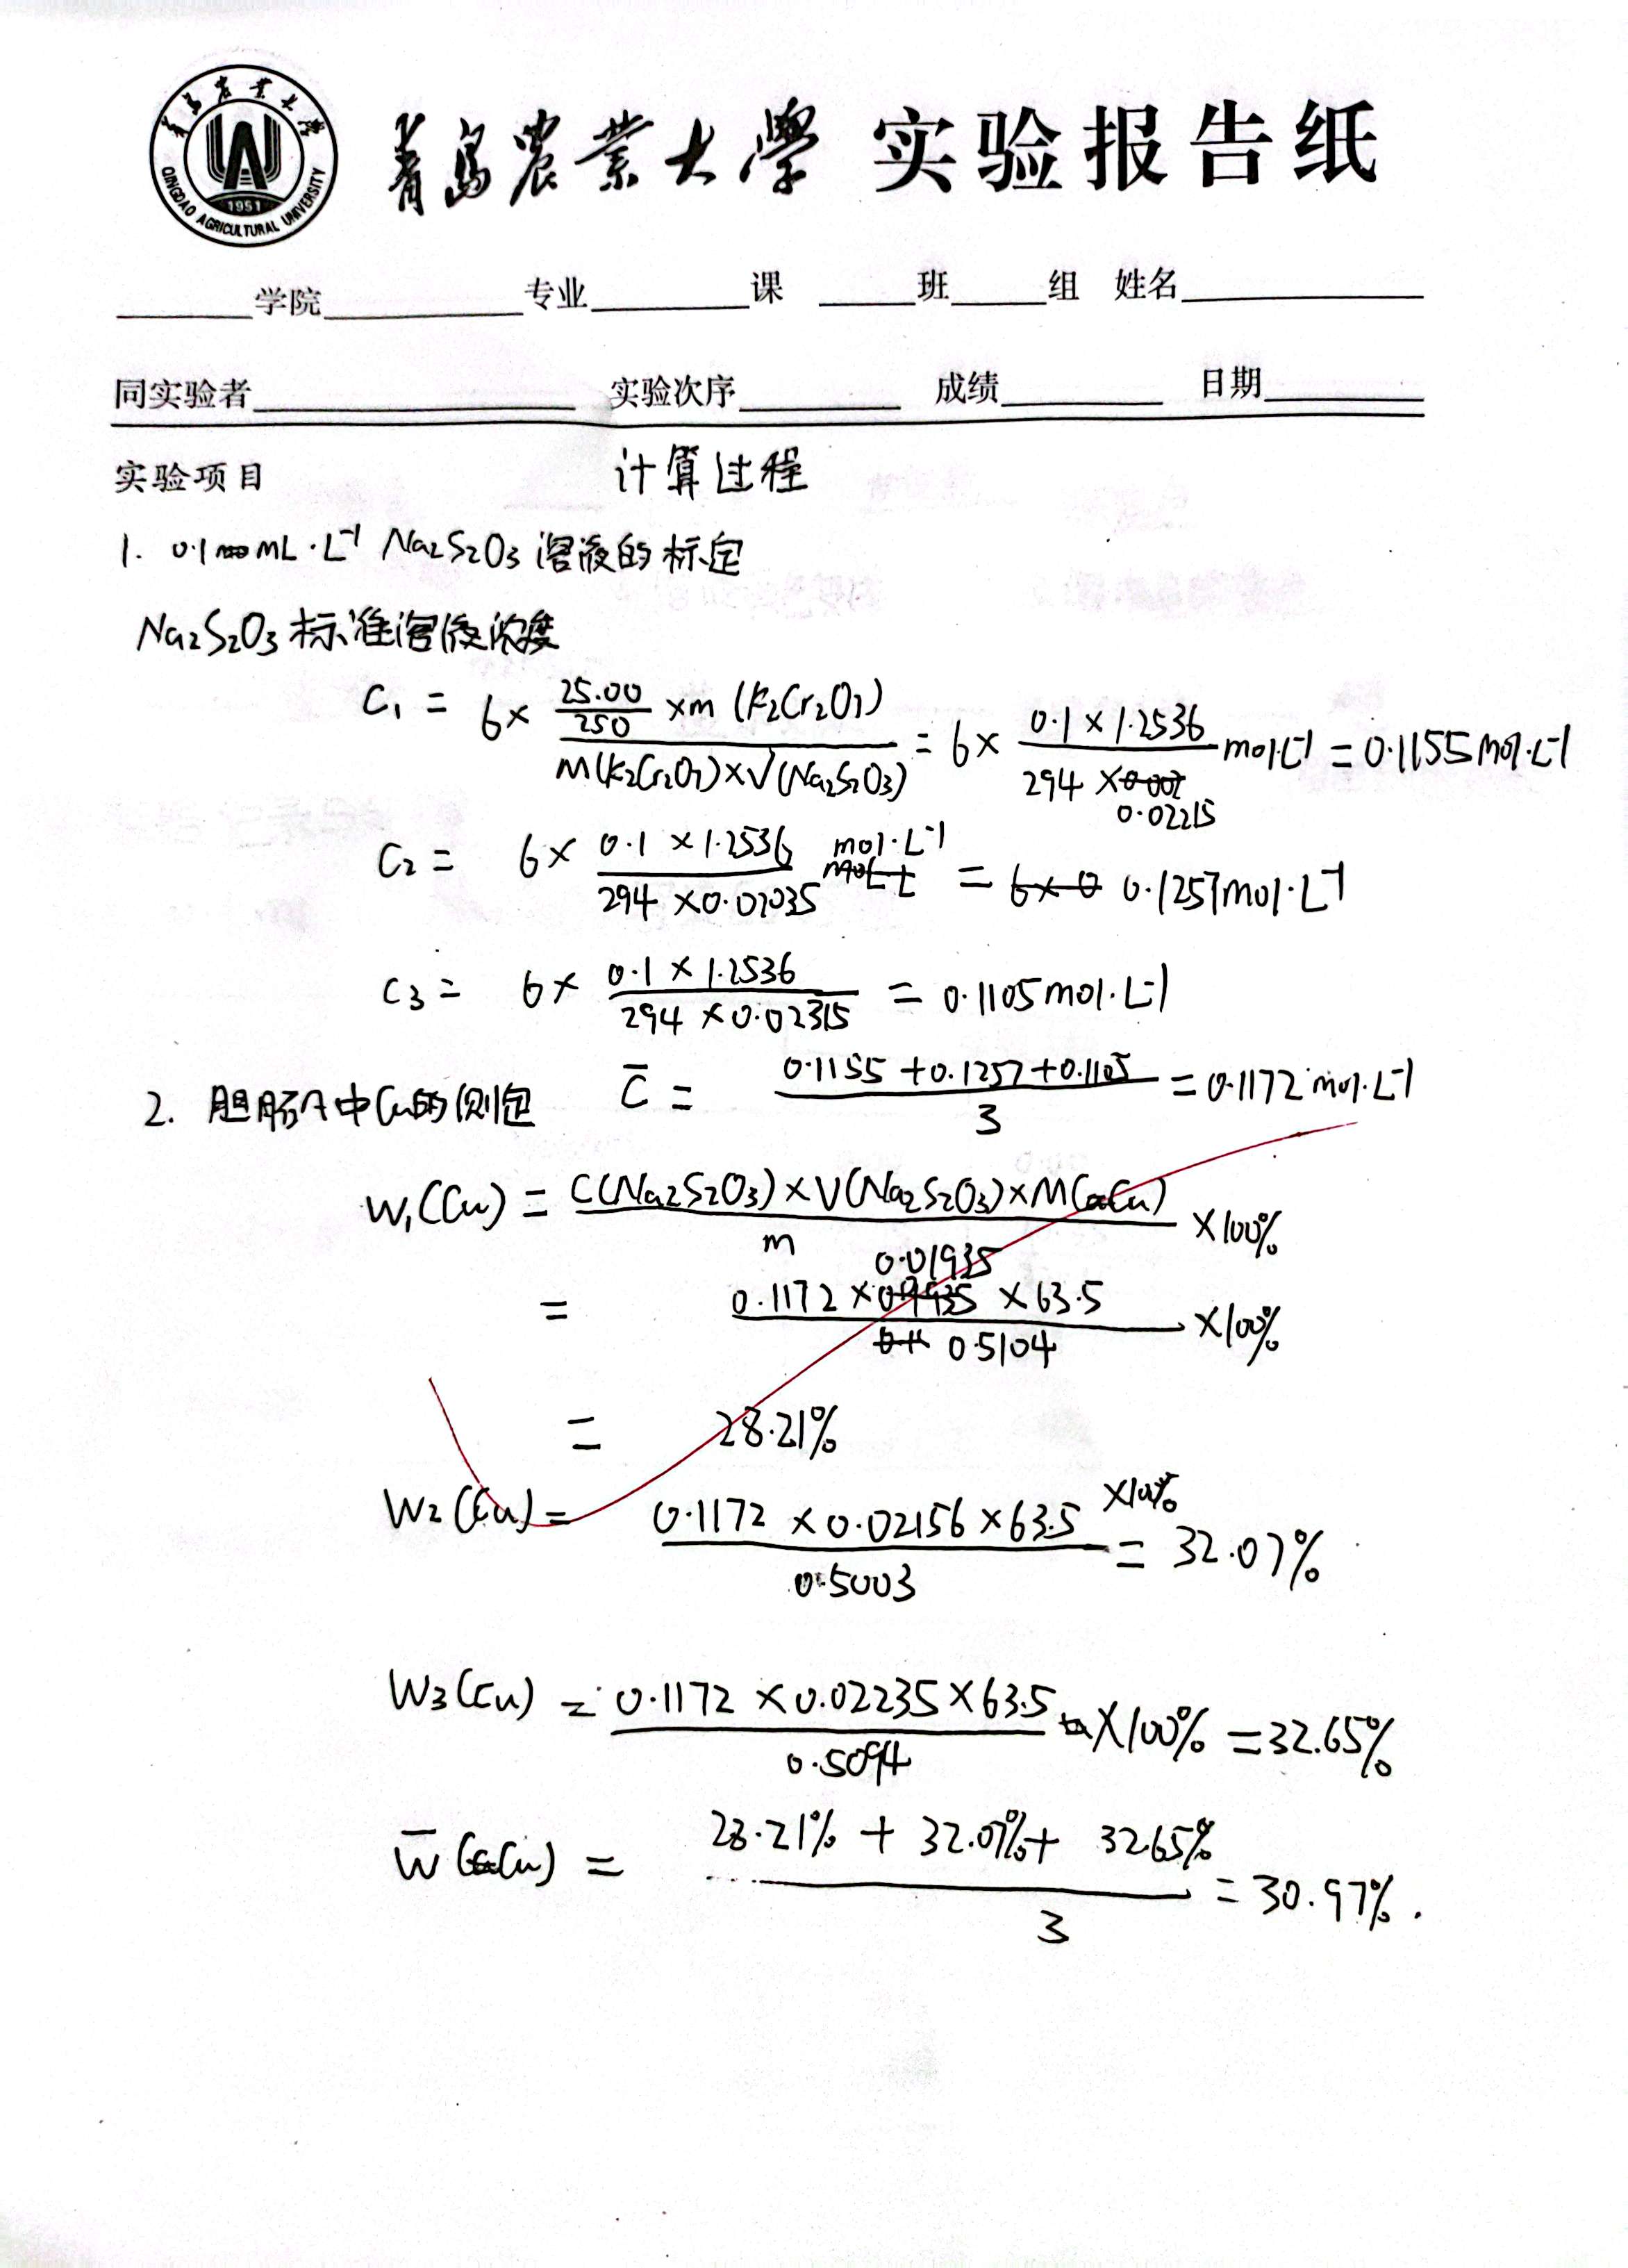 青岛农业大学
QINGDAO AGRICULTURAL UNIVERSITY
1951
青島農業大學 实验报告纸
学院 专业 课 班 组 姓名
同实验者 实验次序 成绩 日期
实验项目 计算过程
1. 0.1 mL·L⁻¹ Na₂S₂O₃ 溶液的标定
Na₂S₂O₃ 标准溶液浓度
C₁ = 6× (25.00/250 ×m (K₂Cr₂O₇))/(M(K₂Cr₂O₇)×V(Na₂S₂O₃)) = 6× (0.1×1.2536)/(294×0.02215) mol·L⁻¹ = 0.1155mol·L⁻¹
C₂ = 6× (0.1×1.2536)/(294×0.02035) mol·L⁻¹ = 0.1257mol·L⁻¹
C₃ = 6× (0.1×1.2536)/(294×0.02315) = 0.1105mol·L⁻¹
C̄ = (0.1155+0.1257+0.1105)/3 = 0.1172mol·L⁻¹
2. 胆矾中Cu的测定
W₁(Cu) = (C(Na₂S₂O₃)×V(Na₂S₂O₃)×M(Cu))/m ×100%
= (0.1172×0.01935×63.5)/0.5104 ×100%
= 28.21%
W₂(Cu) = (0.1172×0.02156×63.5)/0.5003 ×100% = 32.07%
W₃(Cu) = (0.1172×0.02235×63.5)/0.5094 ×100% = 32.65%
W̄(Cu) = (28.21%+32.07%+32.65%)/3 = 30.97%.